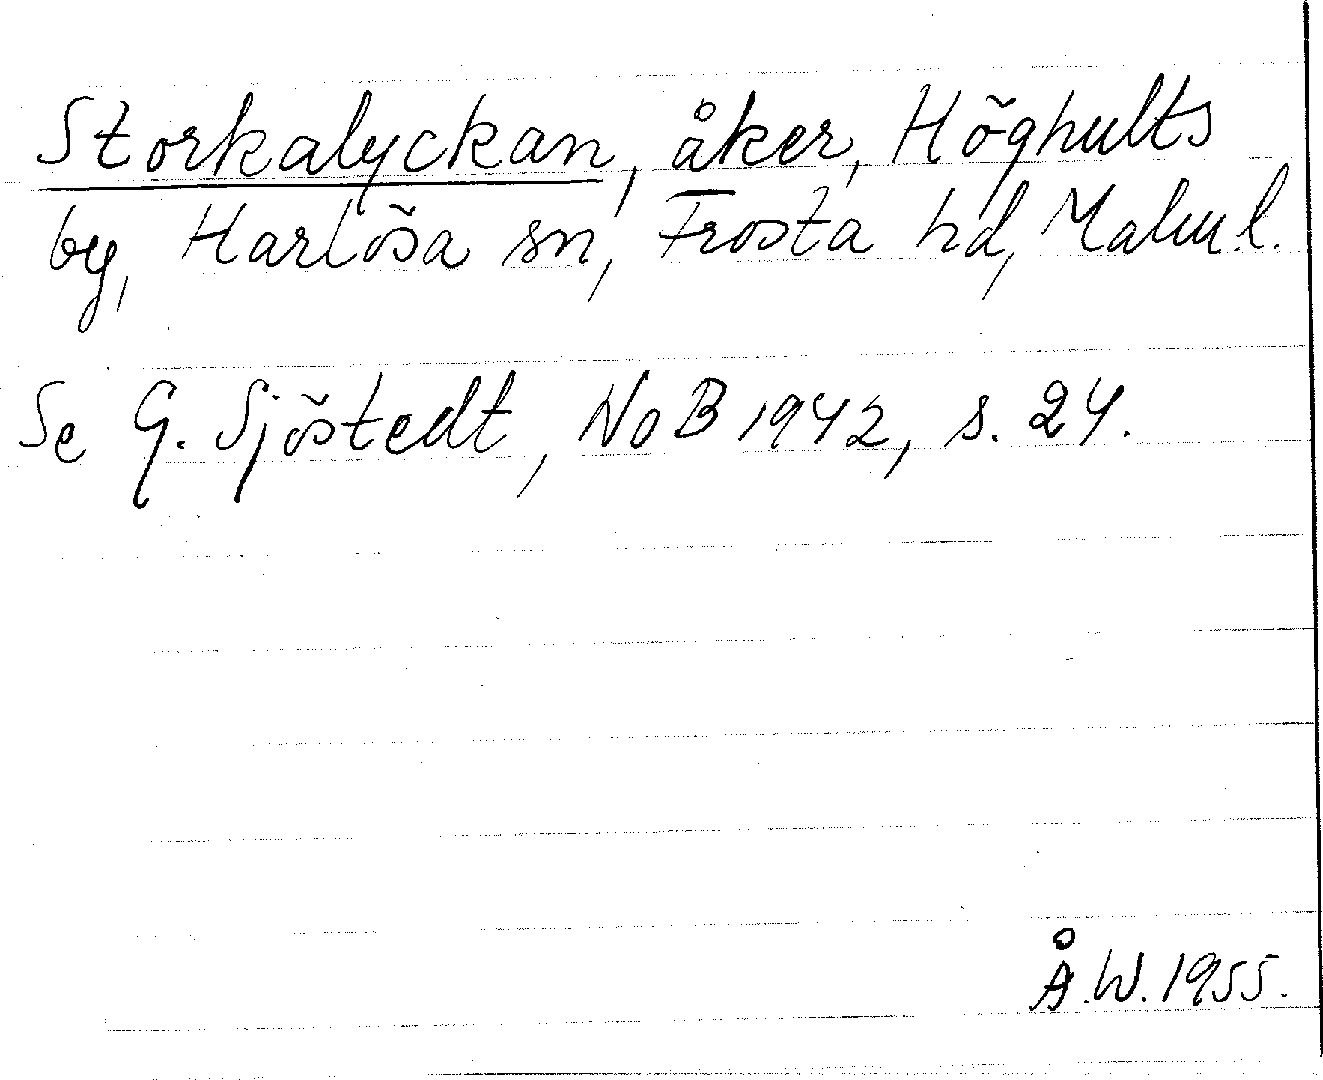 Storkalyckan, åker, Höghults
by, Harlösa sn, Frosta hd, Malm.l.
Se G. Sjöstedt, NoB 1942, s. 24.
Å.W. 1955.